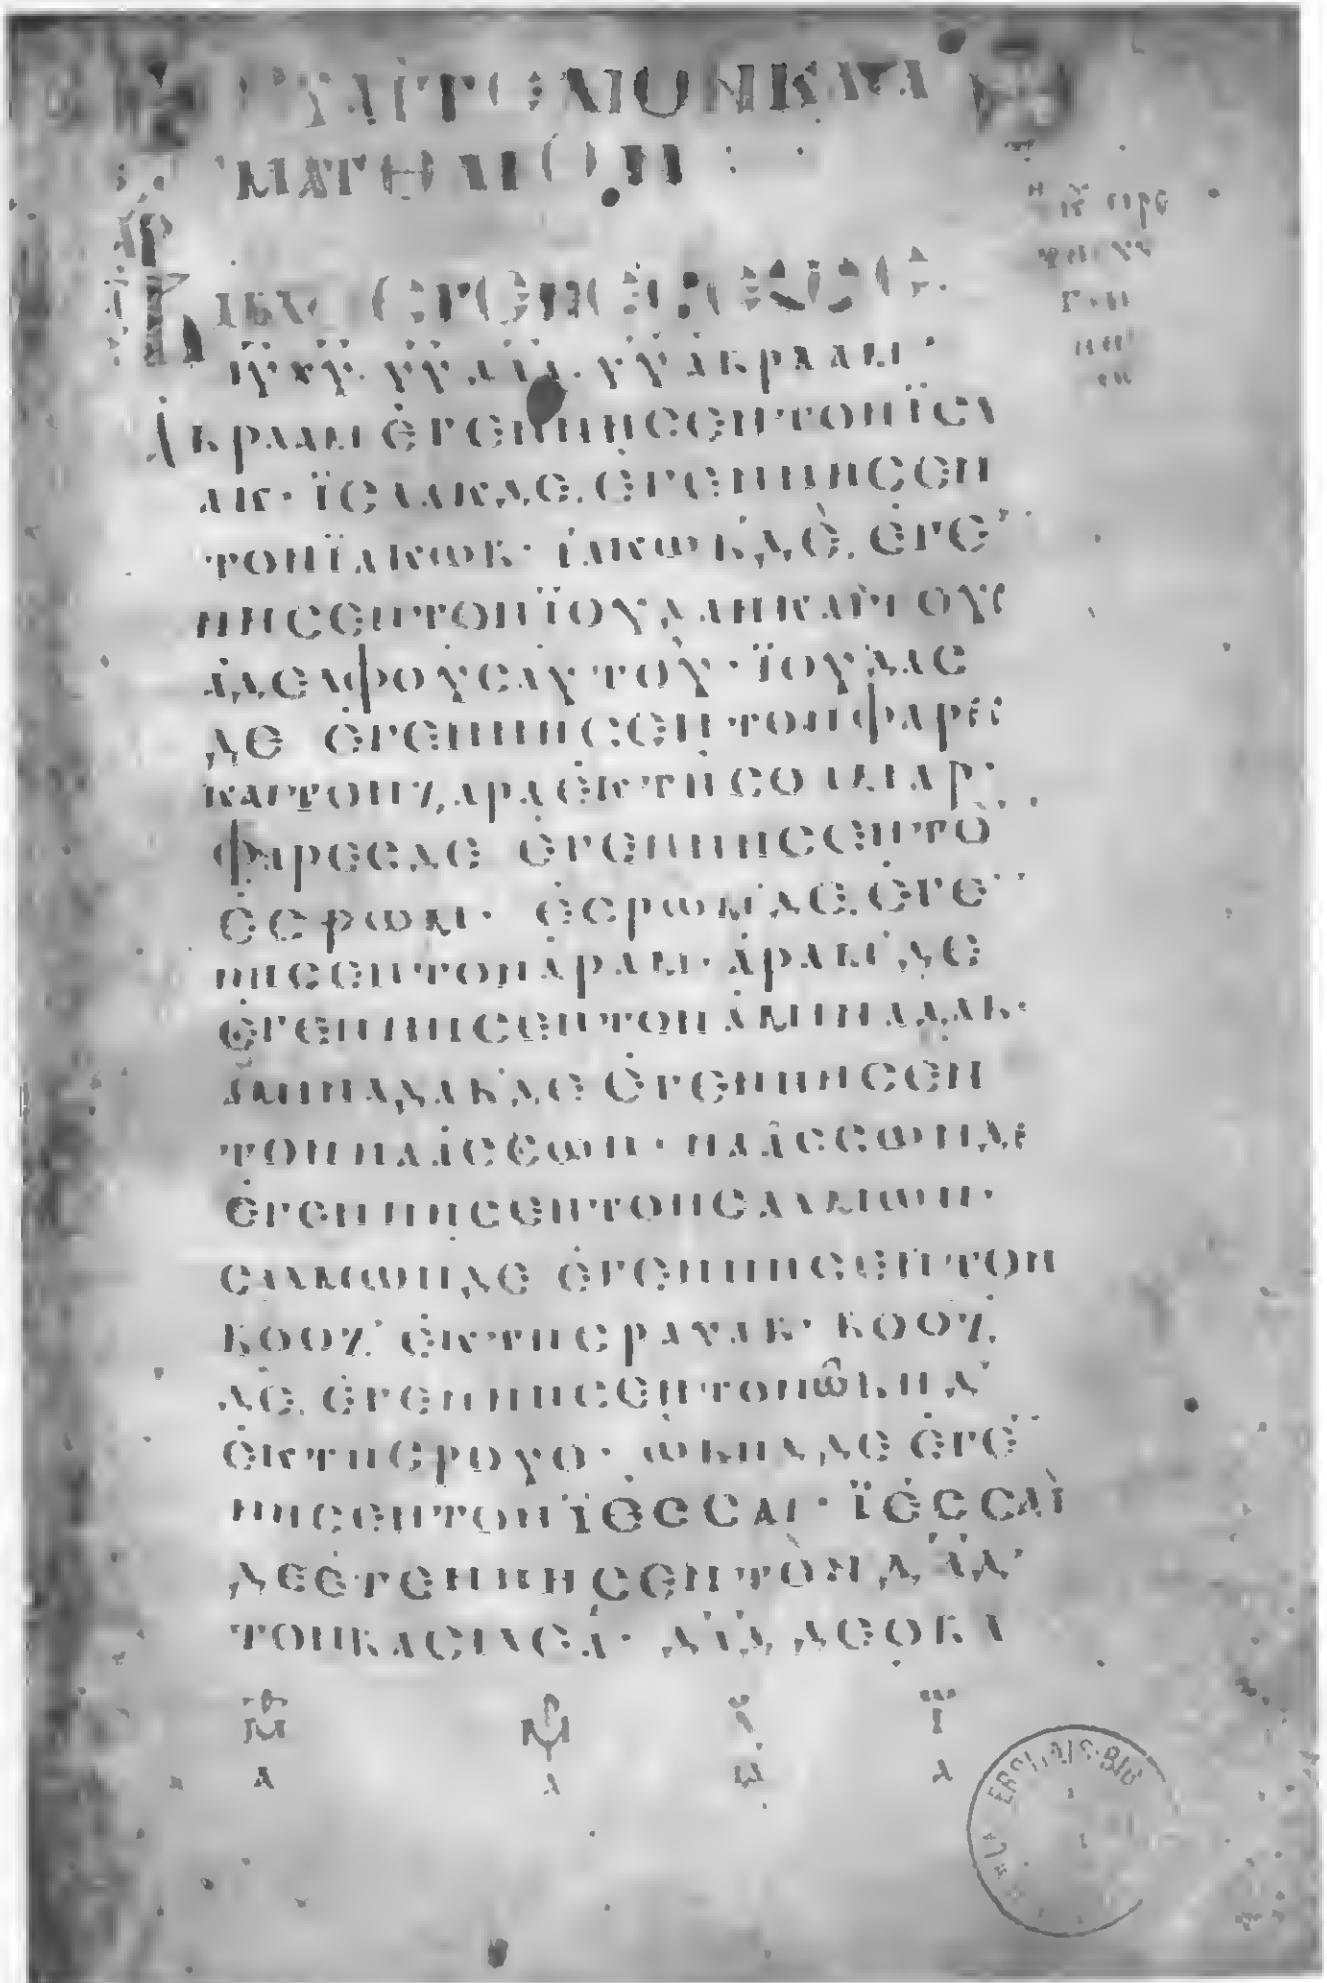 ΕΥΑΓΓΕΛΙΟΝ ΚΑΤΑ
ΜΑΤΘΑΙΟΝ
ΒΙΒΛΟϹ ΓΕΝΕϹΕΩϹ
ΙΥ ΧΥ· ΥΥ ΔΑΔ· ΥΥ ἈΒΡΑΑΜ·
ἈΒΡΑΑΜ ἘΓΕΝΝΗϹΕΝ ΤΟΝ ΪϹΑ
ΑΚ· ΪϹΑΑΚ ΔΕ ἘΓΕΝΝΗϹΕΝ
ΤΟΝ ΪΑΚΩΒ· ΪΑΚΩΒ ΔΕ ἘΓΕ
ΝΗϹΕΝ ΤΟΝ ΪΟΥΔΑΝ ΚΑΙ ΤΟΥϹ
ἈΔΕΛΦΟΥϹ ΑΥΤΟΥ· ΪΟΥΔΑϹ
ΔΕ ἘΓΕΝΝΗϹΕΝ ΤΟΝ ΦΑΡΕϹ
ΚΑΙ ΤΟΝ ΖΑΡΑ ἘΚ ΤΗϹ ΘΑΜΑΡ·
ΦΑΡΕϹ ΔΕ ἘΓΕΝΝΗϹΕΝ ΤΟ
ἘϹΡΩΜ· ἘϹΡΩΜ ΔΕ ἘΓΕ
ΝΗϹΕΝ ΤΟΝ ἈΡΑΜ· ἈΡΑΜ ΔΕ
ἘΓΕΝΝΗϹΕΝ ΤΟΝ ἈΜΙΝΑΔΑΒ·
ἈΜΙΝΑΔΑΒ ΔΕ ἘΓΕΝΝΗϹΕΝ
ΤΟΝ ΝΑΑϹϹΩΝ· ΝΑΑϹϹΩΝ ΔΕ
ἘΓΕΝΝΗϹΕΝ ΤΟΝ ϹΑΛΜΩΝ·
ϹΑΛΜΩΝ ΔΕ ἘΓΕΝΝΗϹΕΝ ΤΟΝ
ΒΟΟΖ ἘΚ ΤΗϹ ΡΑΧΑΒ· ΒΟΟΖ
ΔΕ ἘΓΕΝΝΗϹΕΝ ΤΟΝ ΩΒΗΔ
ἘΚ ΤΗϹ ΡΟΥΘ· ΩΒΗΔ ΔΕ ἘΓΕ
ΝΗϹΕΝ ΤΟΝ ΪΕϹϹΑΙ· ΪΕϹϹΑΙ
ΔΕ ἘΓΕΝΝΗϹΕΝ ΤΟΝ ΔΑΔ
ΤΟΝ ΒΑϹΙΛΕΑ· ΔΑΔ ΔΕ Ο ΒΑ